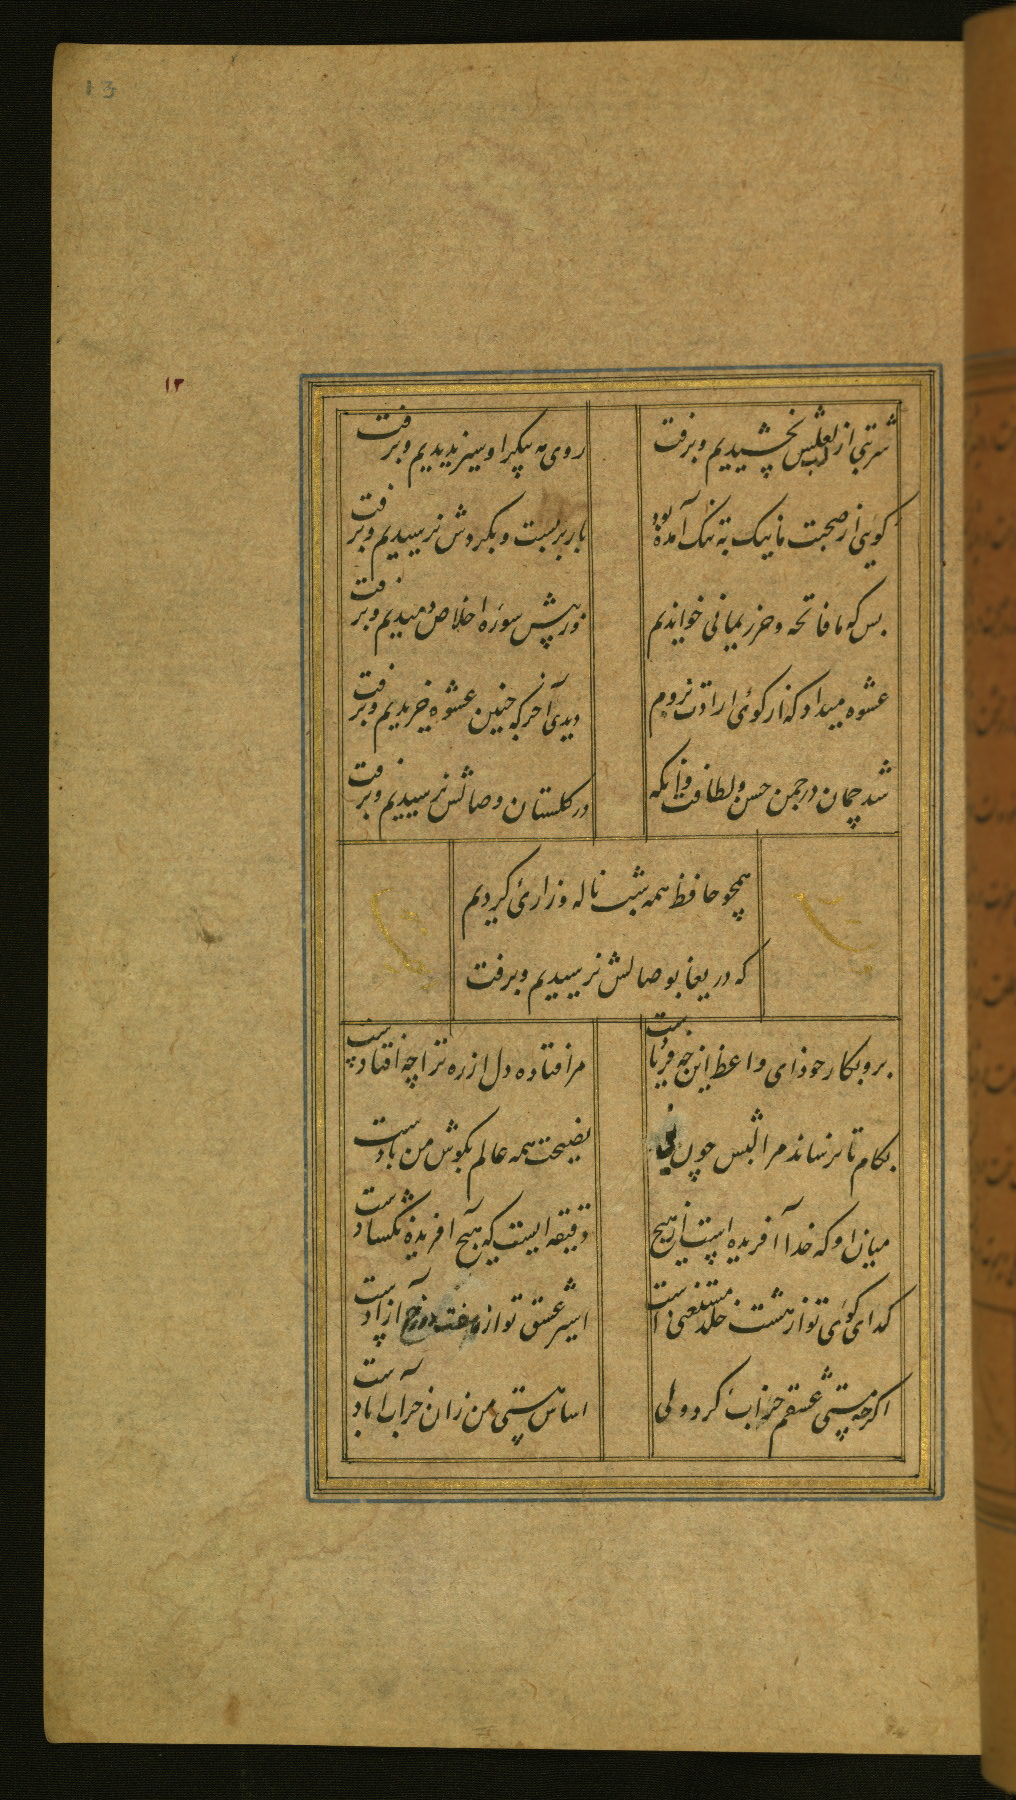 13
۱۲
شربتی از لب لعلش نچشیدیم و برفت
روی مه پیکر او سیر ندیدیم و برفت
گویی از صحبت ما نیک به تنگ آمده بود
بار بربست و بگردش نرسیدیم و برفت
بس که ما فاتحه و حرز یمانی خواندیم
وز پیش سوره اخلاص دمیدیم و برفت
عشوه میداد که از کوی ارادت نروم
دیدی آخر که چنین عشوه خریدیم و برفت
شد چمان در چمن حسن و لطافت وانکه
در گلستان وصالش نرسیدیم و برفت
همچو حافظ همه شب ناله و زاری کردیم
که دریغا بوصالش نرسیدیم و برفت
برو بکار خود ای واعظ این چه فریادست
مرا فتاده دل از ره ترا چه افتادست
بکام تا نرساند مرا لبش چون نی
نصیحت همه عالم بگوش من بادست
میان او که خدا آفریده است از هیچ
دقیقه ایست که هیچ آفریده نگشادست
گدای کوی تو از هشت خلد مستغنی است
اسیر عشق تو از هفت دوزخ آزادست
اگرچه مستی عشقم خراب کرد ولی
اساس هستی من زان خراب آبادست